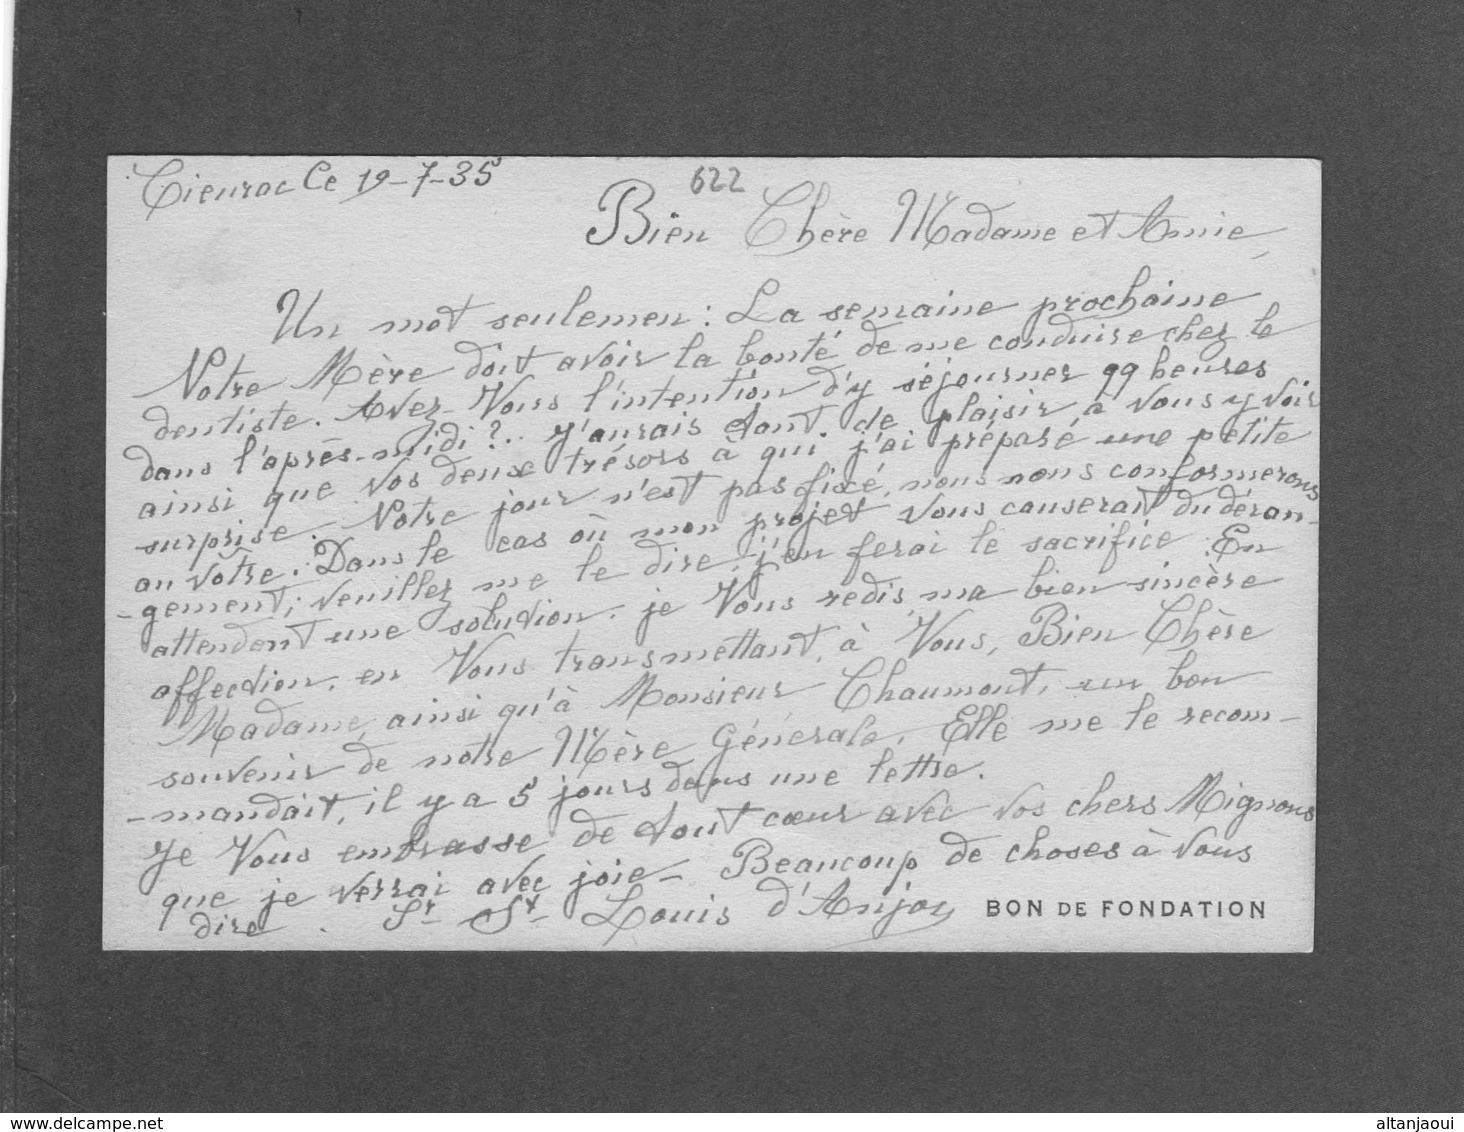 Tienroc Ce 19-7-35
622
Bien Chère Madame et Amie,
Un mot seulemen: La semaine prochaine
Notre Mère doit avoir la bonté de me conduire chez le
dentiste. Avez-Vous l'intention d'y séjourner qq heures
dans l'après-midi?.. J'aurais tant de plaisir à vous y voir
ainsi que vos deux trésors à qui j'ai préparé une petite
surprise. Notre jour n'est pas fixé, nous nous conformerons
au vôtre. Dans le cas où mon projet vous causerait du déran-
-gement; veuillez me le dire, j'en ferai le sacrifice. En
attendant une solution. je Vous redis, ma bien sincère
affection, en Vous transmettant, à Vous, Bien Chère
Madame, ainsi qu'à Monsieur Chaumont, un bon
souvenir de notre Mère Générale. Elle me le recom-
-mandait, il y a 5 jours dans une lettre.
Je Vous embrasse de tout cœur avec vos chers Mignons
que je verrai avec joie - Beaucoup de choses à Vous
dire. Sr St Louis d'Anjou
BON DE FONDATION
altanjaoui
delcampe.net